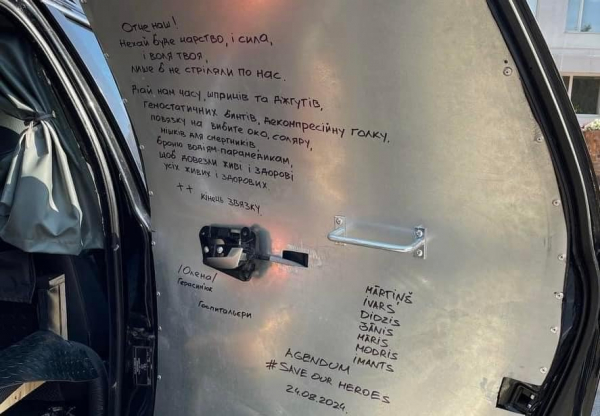 Отче наш!
Нехай буде царство, і сила,
і воля твоя,
лише б не стріляли по нас.
Дай нам часу, шприців та джгутів,
гемостатичних бинтів, декомпресійну голку,
пов'язку на вибите око, соляру,
мішків для смертників,
броню водіям-парамедикам,
щоб довезли живі і здорові
усіх живих і здорових.
++ кінець зв'язку.
/Олена/
Герасим'юк
Госпітальєри
MĀRTIŅŠ
IVARS
DIDZIS
JĀNIS
MĀRIS
MODRIS
IMANTS
AGENDUM
# SAVE OUR HEROES
24.08.2024.